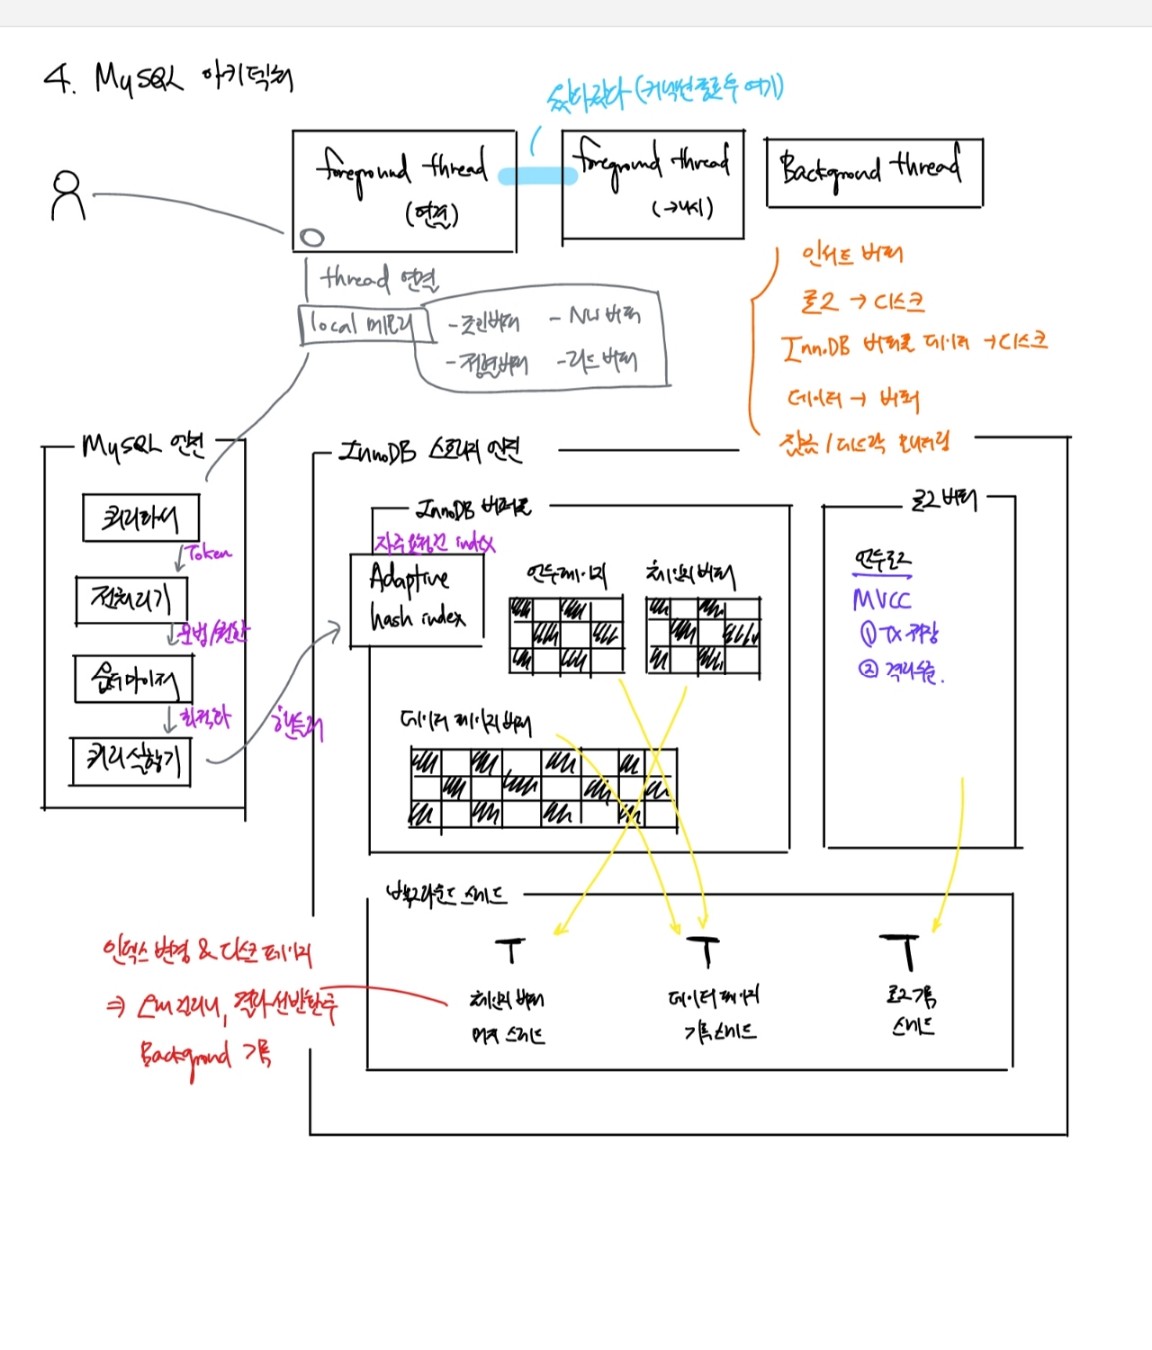 4. MySQL 아키텍처
왔다갔다 (커넥션풀도 여기)
foreground thread
(연결)
foreground thread
(→캐시)
Background thread
thread 연결
local 메모리
- 조인버퍼
- Net 버퍼
- 정렬버퍼
- 리드 버퍼
인서트 버퍼
로그 → 디스크
InnoDB 버퍼풀 데이터 → 디스크
데이터 → 버퍼
잠금 / 데드락 모니터링
MySQL 엔진
쿼리파서
Token
전처리기
문법/권한
옵티마이저
최적화
쿼리실행기
핸들러
InnoDB 스토리지 엔진
InnoDB 버퍼풀
자주요청된 index
Adaptive
hash index
언두페이지
체인지버퍼
데이터 페이지 버퍼
로그 버퍼
언두로그
MVCC
① TX 보장
② 격리수준.
백그라운드 스레드
T
체인지 버퍼
머지 스레드
T
데이터 페이지
기록스레드
T
로그기록
스레드
인덱스 변경 & 디스크 페이지
⇒ 오래걸리니, 결과선반환후
Background 기록